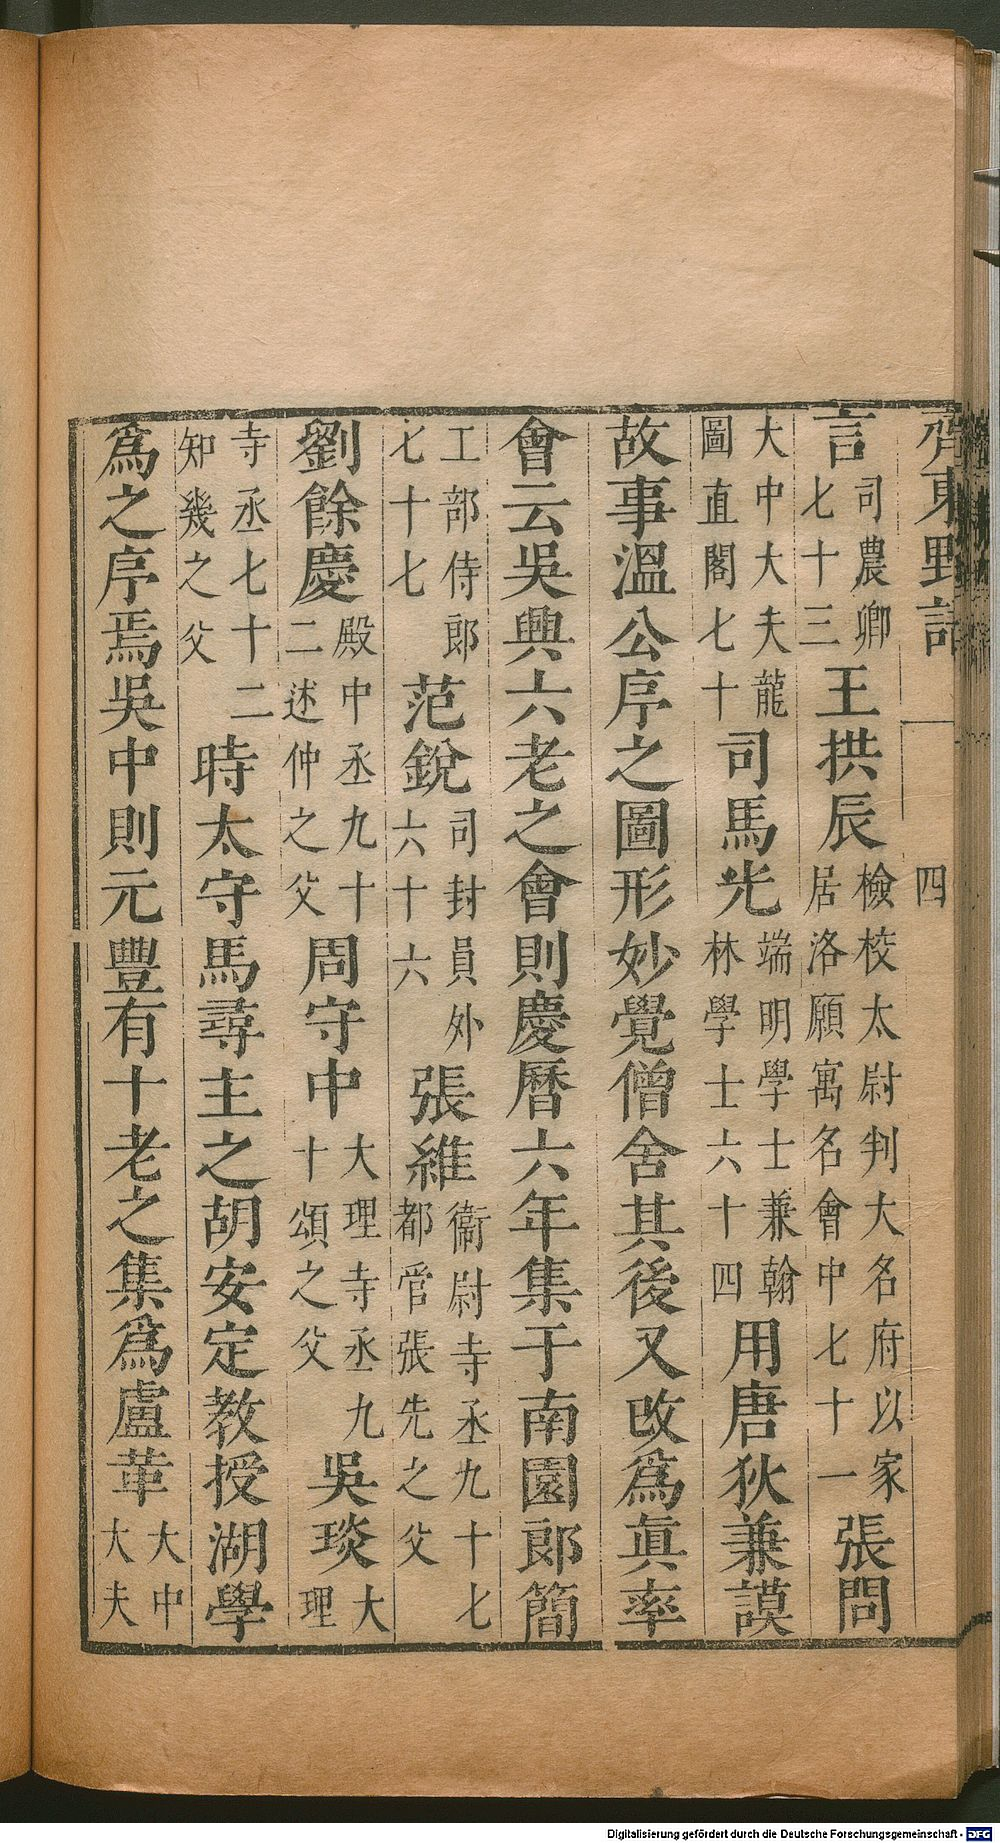 齊東野語 四
言司農卿七十三王拱辰檢校太尉判大名府以家居洛願寓名會中七十一張問
大中大夫龍圖直閣七十司馬光端明學士兼翰林學士六十四用唐狄兼謨
故事溫公序之圖形妙覺僧舍其後又改爲眞率
會云吳興六老之會則慶曆六年集于南園郎簡
工部侍郎七十七范銳司封員外六十六張維衞尉寺丞九十七都官張先之父
劉餘慶殿中丞九十二述仲之父周守中大理寺丞九十頌之父吳琰大理
寺丞七十二知幾之父時太守馬尋主之胡安定教授湖學
爲之序焉吳中則元豐有十老之集爲盧革大中大夫
Digitalisierung gefördert durch die Deutsche Forschungsgemeinschaft - DFG